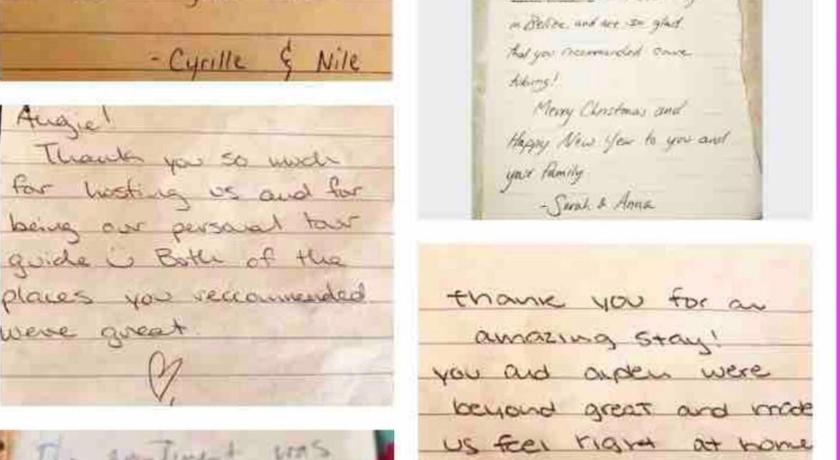 - Cyrille & Nile
Augie!
Thank you so much
for hosting us and for
being our personal tour
guide ü Both of the
places you reccommended
were great.
was
in Belize, and are so glad
that you recommended cave
tubing!
Merry Christmas and
Happy New Year to you and
your family
- Sarah & Anna
thank you for an
amazing stay!
you and were
beyond great and made
us feel right at home